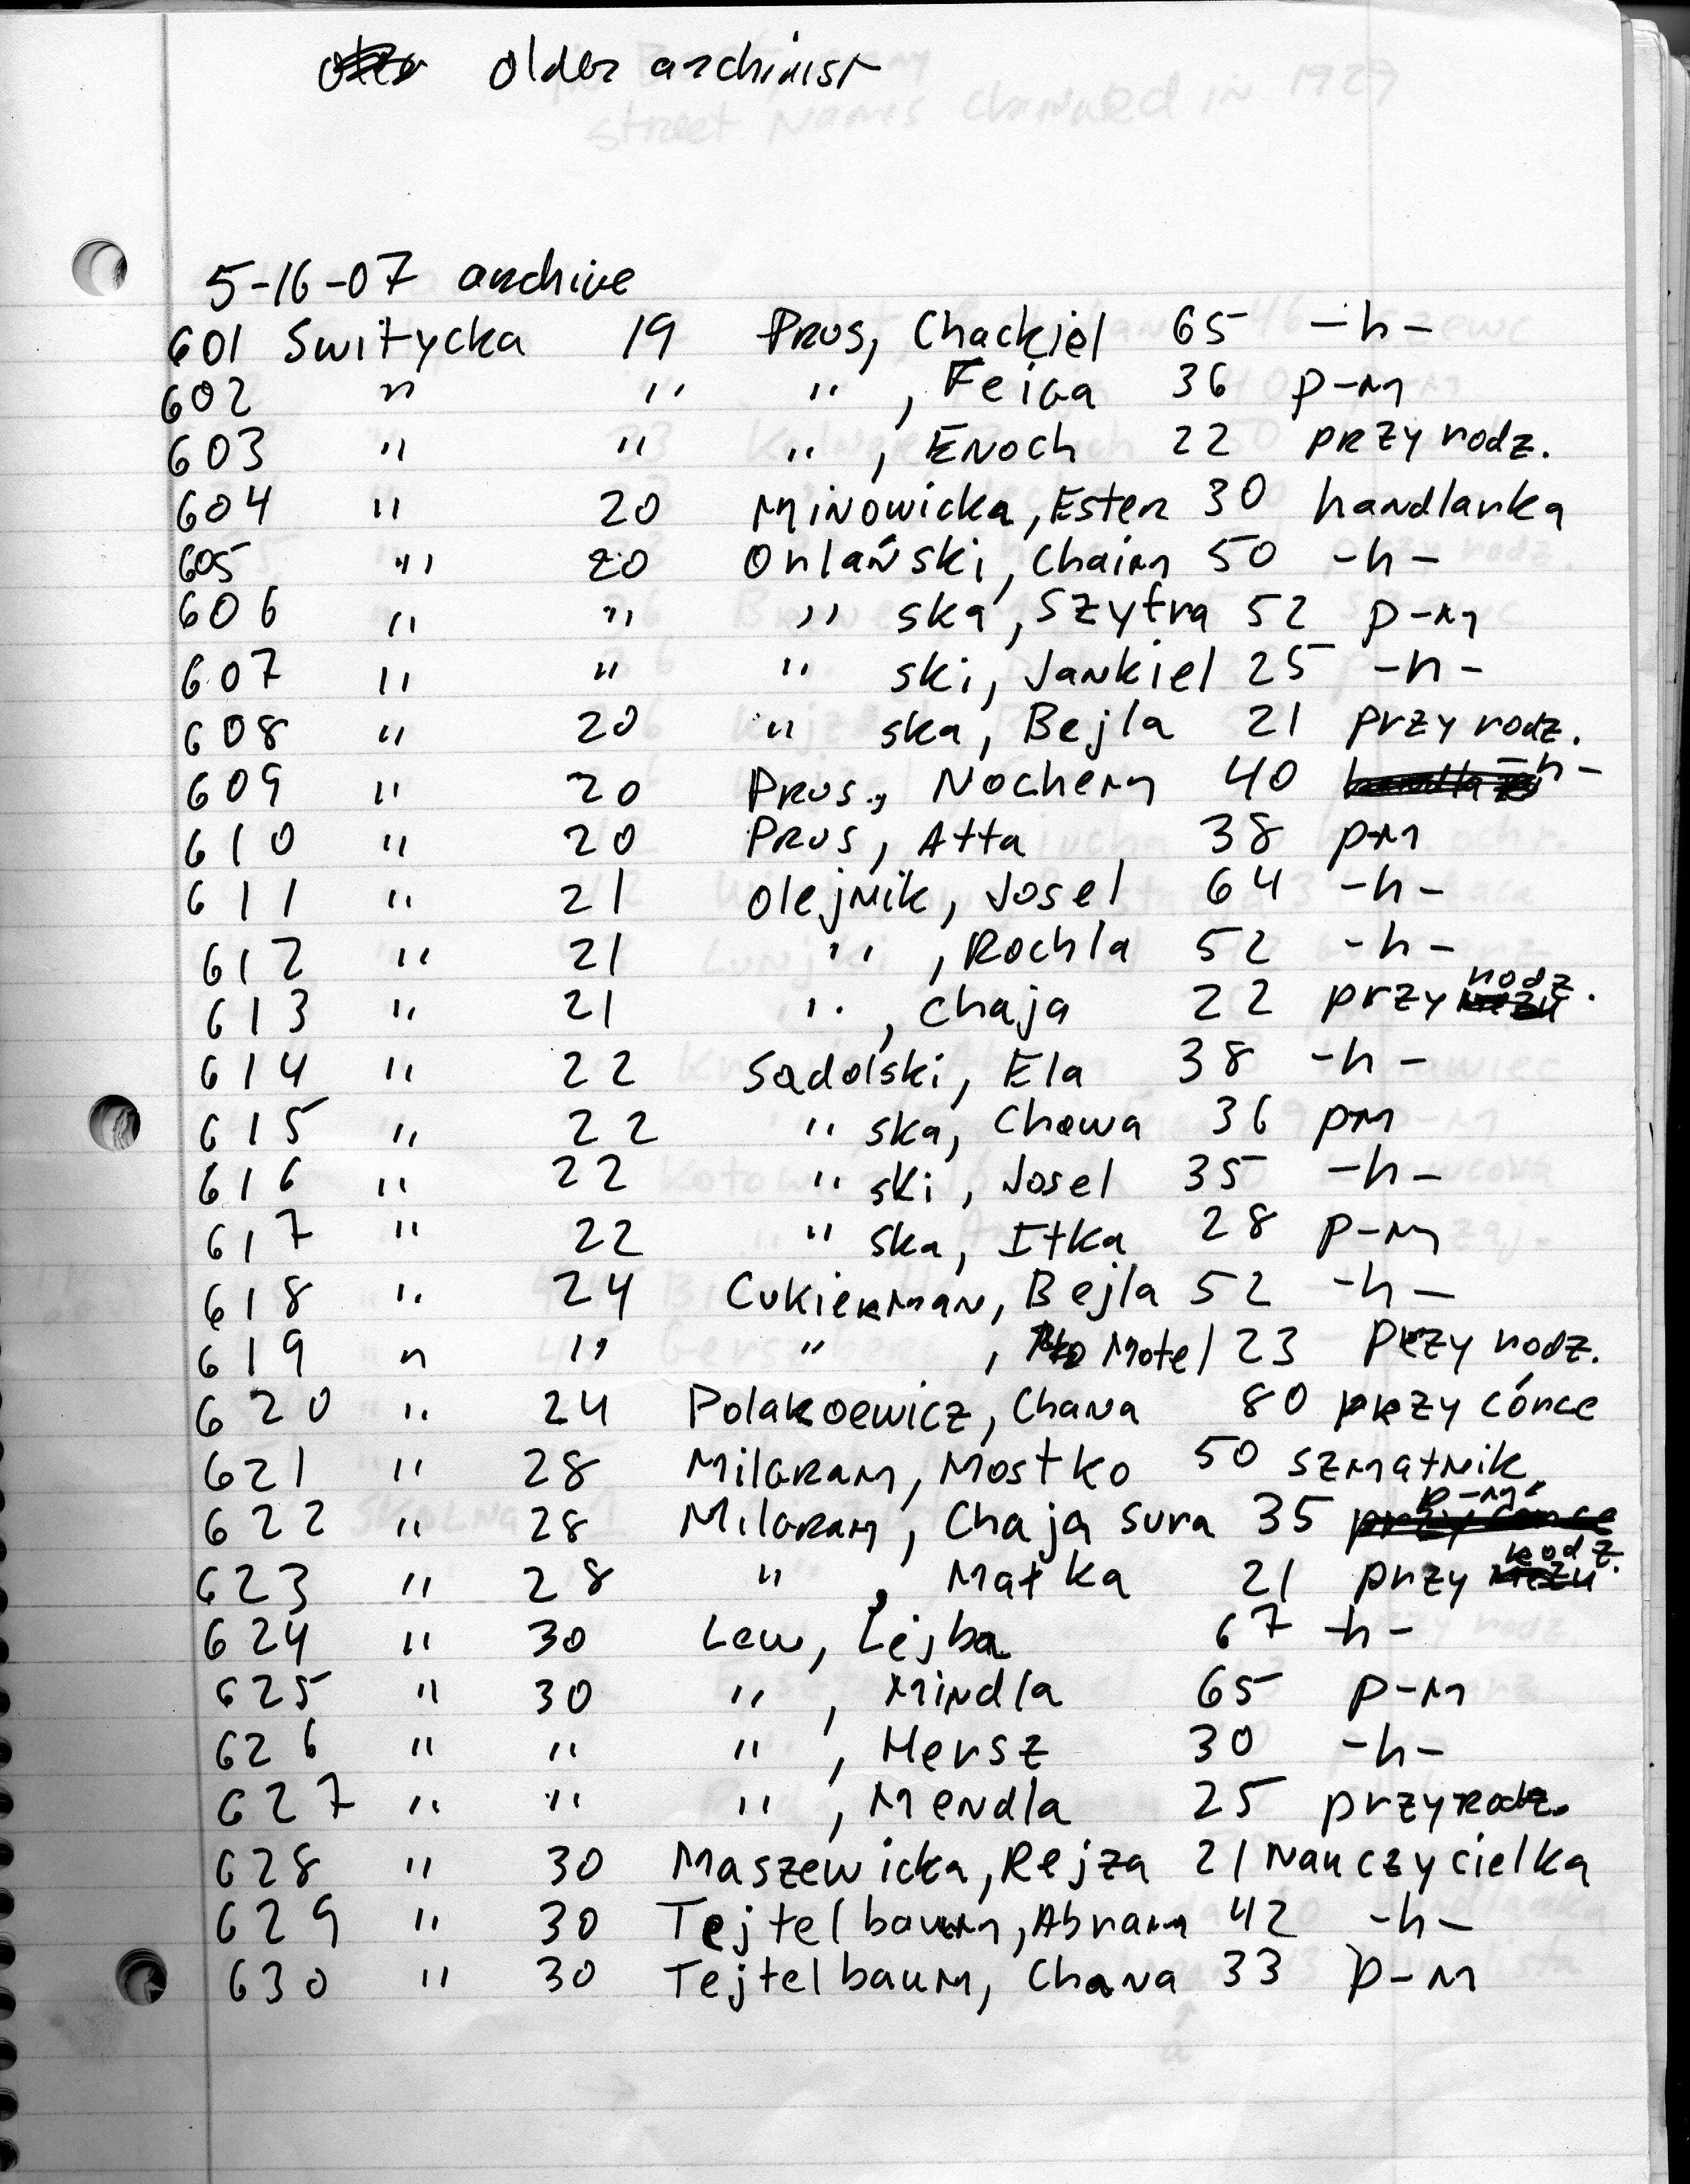 older archivist
5-16-07 archive
601 Switycka 19 Prus, Chackiel 65 -h-
602 " " " , Feiga 36 p-m
603 " " " , Enoch 22 przy rodz.
604 " 20 Minowicka, Ester 30 handlarka
605 " 20 Orlański, Chaim 50 -h-
606 " " " ska, Szytra 52 p-m
607 " " " ski, Jankiel 25 -h-
608 " 20 " ska, Bejla 21 przy rodz.
609 " 20 Prus, Nochem 40 -h-
610 " 20 Prus, Atta 38 p-m
611 " 21 Olejnik, Josel 64 -h-
612 " 21 " , Rochla 52 -h-
613 " 21 " , Chaja 22 przy rodz.
614 " 22 Sadolski, Ela 38 -h-
615 " 22 " ska, Chawa 36 pm
616 " 22 " ski, Josel 35 -h-
617 " 22 " ska, Itka 28 p-m
618 " 24 Cukierman, Bejla 52 -h-
619 " " " , Motel 23 przy rodz.
620 " 24 Polakoewicz, Chana 80 przy córce
621 " 28 Milgram, Mostko 50 szmatnik
622 " 28 Milgram, Chaja Sura 35 p-m
623 " 28 " , Matka 21 przy rodz.
624 " 30 Lew, Lejba 67 -h-
625 " 30 " , Mindla 65 p-m
626 " " " , Hersz 30 -h-
627 " " " , Mendla 25 przy rodz.
628 " 30 Maszewicka, Rejza 21 Nauczycielka
629 " 30 Tejtelbaum, Abram 42 -h-
630 " 30 Tejtelbaum, Chana 33 p-m